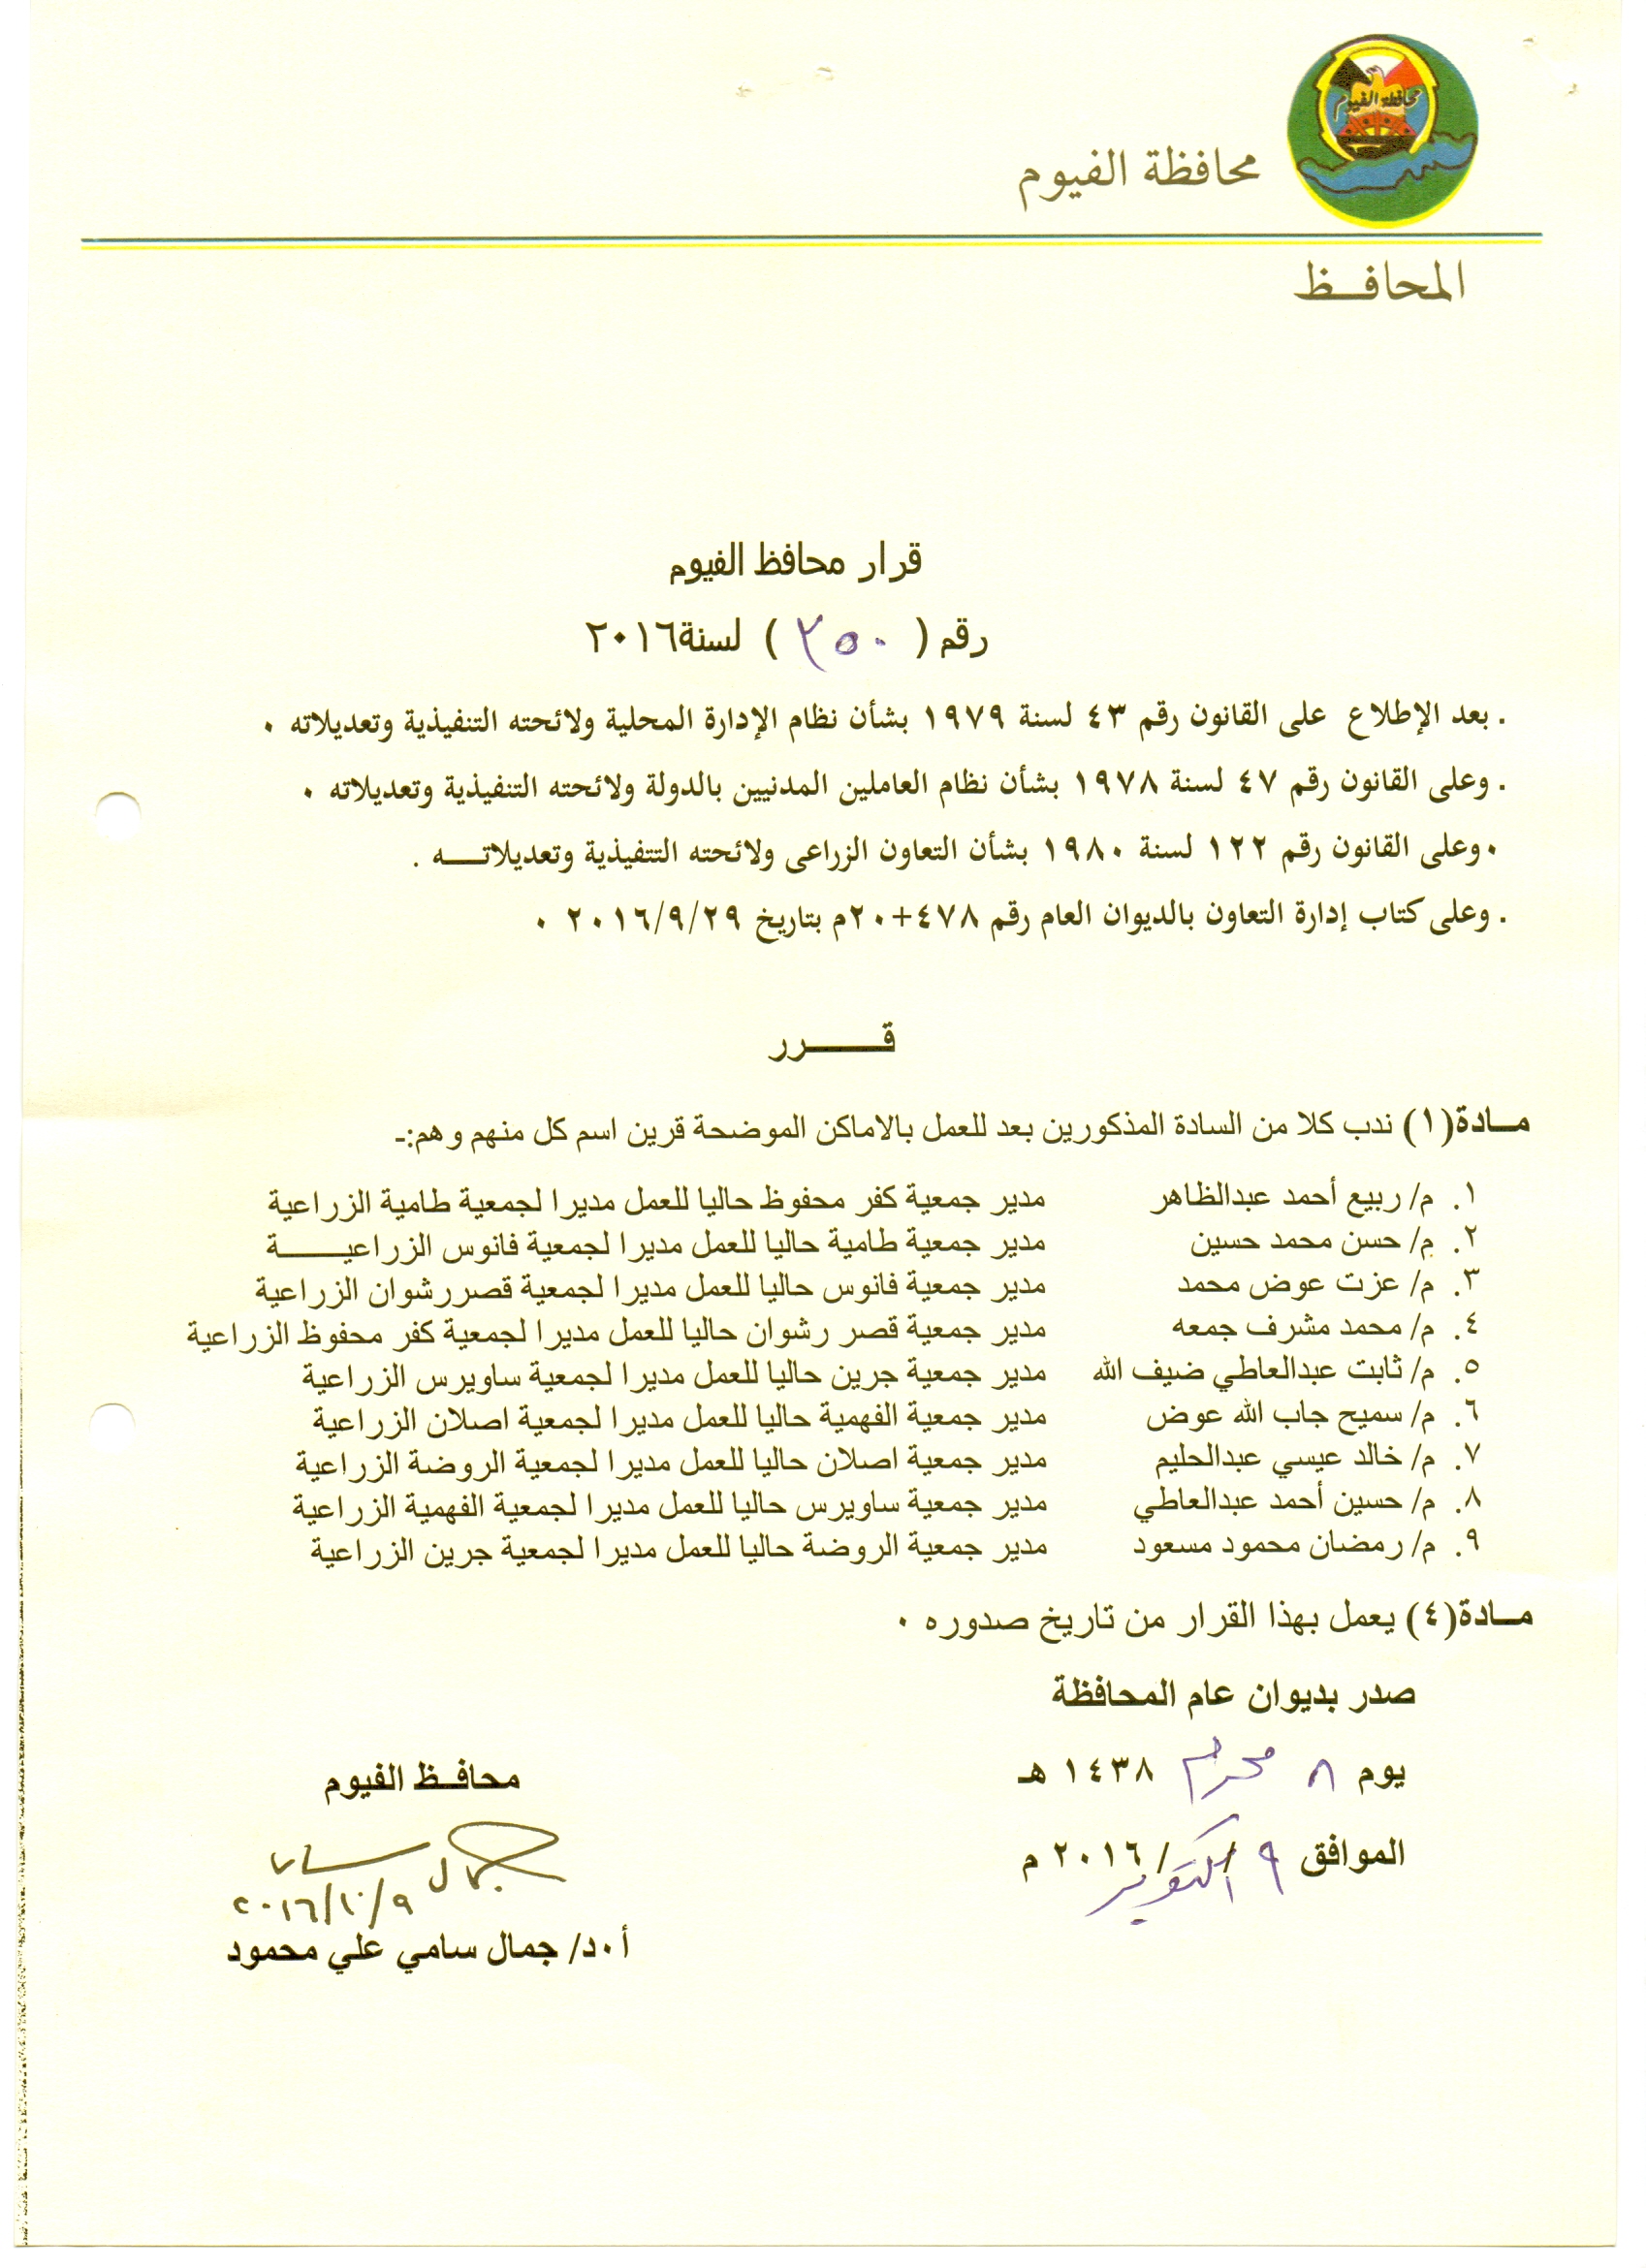 محافظة الفيوم
محافظة الفيوم
المحافــظ
قرار محافظ الفيوم
رقم ( ٣٥٠ ) لسنة٢٠١٦
. بعد الإطلاع على القانون رقم ٤٣ لسنة ١٩٧٩ بشأن نظام الإدارة المحلية ولائحته التنفيذية وتعديلاته ٠
. وعلى القانون رقم ٤٧ لسنة ١٩٧٨ بشأن نظام العاملين المدنيين بالدولة ولائحته التنفيذية وتعديلاته ٠
٠ وعلى القانون رقم ١٢٢ لسنة ١٩٨٠ بشأن التعاون الزراعى ولائحته التتفيذية وتعديلاتـــه .
. وعلى كتاب إدارة التعاون بالديوان العام رقم ٤٧٨+٢٠م بتاريخ ٢٠١٦/٩/٢٩ ٠
قــــــرر
مــادة(١) ندب كلا من السادة المذكورين بعد للعمل بالاماكن الموضحة قرين اسم كل منهم وهم:ـ
١. م/ ربيع أحمد عبدالظاهر مدير جمعية كفر محفوظ حاليا للعمل مديرا لجمعية طامية الزراعية
٢. م/ حسن محمد حسين مدير جمعية طامية حاليا للعمل مديرا لجمعية فانوس الزراعيــــــة
٣. م/ عزت عوض محمد مدير جمعية فانوس حاليا للعمل مديرا لجمعية قصررشوان الزراعية
٤. م/ محمد مشرف جمعه مدير جمعية قصر رشوان حاليا للعمل مديرا لجمعية كفر محفوظ الزراعية
٥. م/ ثابت عبدالعاطي ضيف الله مدير جمعية جرين حاليا للعمل مديرا لجمعية ساويرس الزراعية
٦. م/ سميح جاب الله عوض مدير جمعية الفهمية حاليا للعمل مديرا لجمعية اصلان الزراعية
٧. م/ خالد عيسي عبدالحليم مدير جمعية اصلان حاليا للعمل مديرا لجمعية الروضة الزراعية
٨. م/ حسين أحمد عبدالعاطي مدير جمعية ساويرس حاليا للعمل مديرا لجمعية الفهمية الزراعية
٩. م/ رمضان محمود مسعود مدير جمعية الروضة حاليا للعمل مديرا لجمعية جرين الزراعية
مــادة(٤) يعمل بهذا القرار من تاريخ صدوره ٠
صدر بديوان عام المحافظة
يوم ٨ محرم ١٤٣٨ هـ
الموافق ٩ / اكتوبر / ٢٠١٦ م
محافــظ الفيوم
جمال سامي
٢٠١٦/١٠/٩
أ٠د/ جمال سامي علي محمود